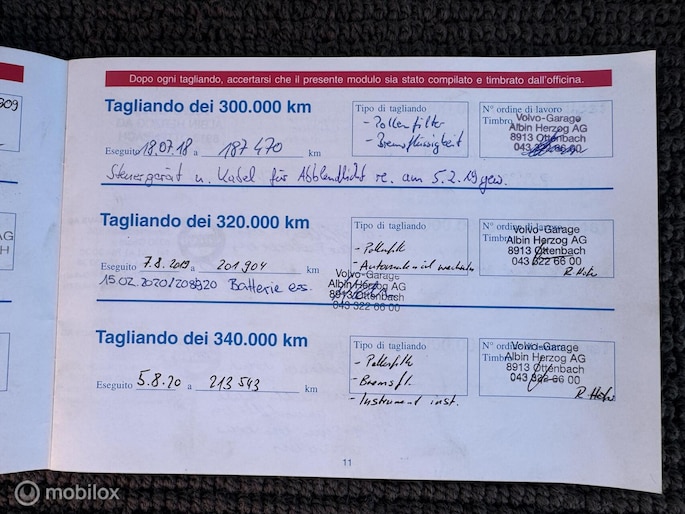 309
Dopo ogni tagliando, accertarsi che il presente modulo sia stato compilato e timbrato dall'officina.
Tagliando dei 300.000 km
Tipo di tagliando
- Pollenfilter
- Bremsflüssigkeit
N° ordine di lavoro
Timbro
Volvo-Garage
Albin Herzog AG
8913 Ottenbach
043 322 66 00
Eseguito 18.07.18 a 187470 km
Steuergerät u. Kabel für Abblendlicht re. am 5.2.19 gew.
AG
H
Tagliando dei 320.000 km
Tipo di tagliando
- Pollenfilt
N° ordine di lavoro
Timbro
Volvo-Garage
Albin Herzog AG
8913 Ottenbach
043 322 66 00
Eseguito 7.8.2019 a 201904 km
15.02.2020/208920 Batterie ers.
Volvo-Garage
Albin Herzog AG
8913 Ottenbach
043 322 66 00
Tagliando dei 340.000 km
Tipo di tagliando
- Pollenfilt
- Bremsfl.
- Instrument inst.
N° ordine di lavoro
Timbro
Volvo-Garage
Albin Herzog AG
8913 Ottenbach
043 322 66 00
Eseguito 5.8.20 a 213543 km
11
mobilox